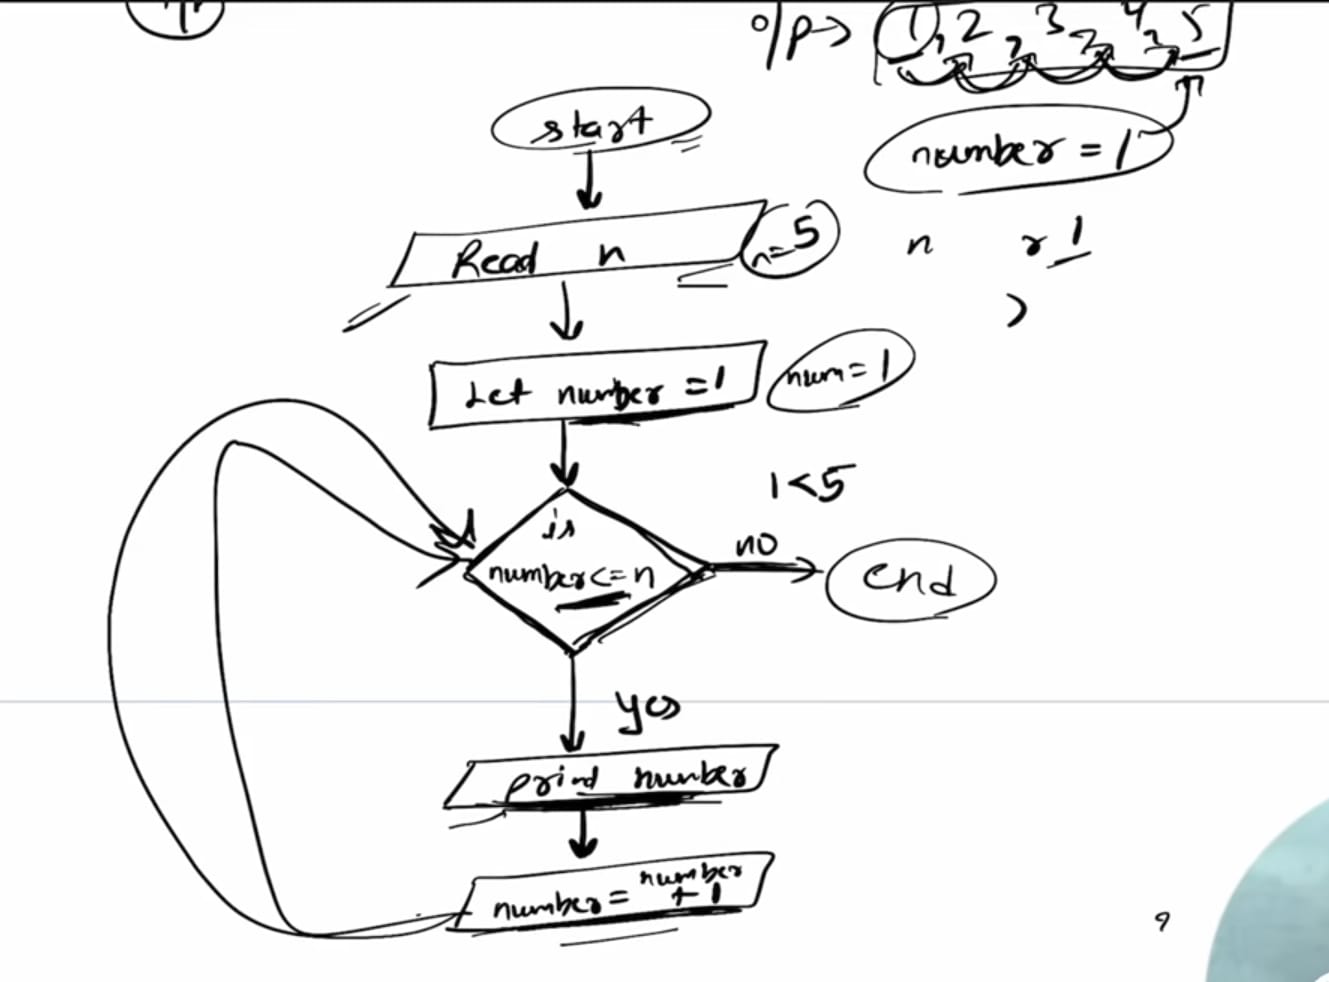 o/p → 1, 2, 3, 4, 5
start
number = 1
Read n
n=5
n r 1
Let number = 1
num=1
1<5
is
number<=n
no
end
yes
print number
number = number
+ 1
9